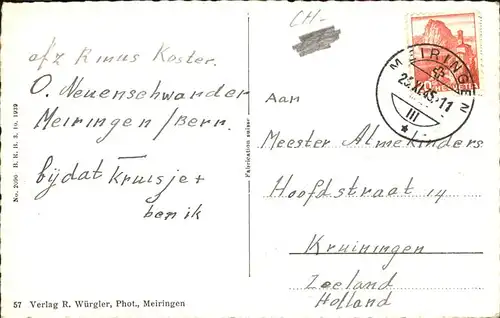 CH-
afz Rinus Koster.
O. Neuenschwander
Meiringen/Bern.
bijdat kruisje +
ben ik
No. 2090 B. K. 11. 10. 1929
57 Verlag R. Würgler, Phot., Meiringen
Fabrication suisse
MEIRINGEN
25.XI.45.-11
III
HELVETIA
Aan
Meester Almekinders
Hoofdstraat 14
Kruiningen
Zeeland
Holland